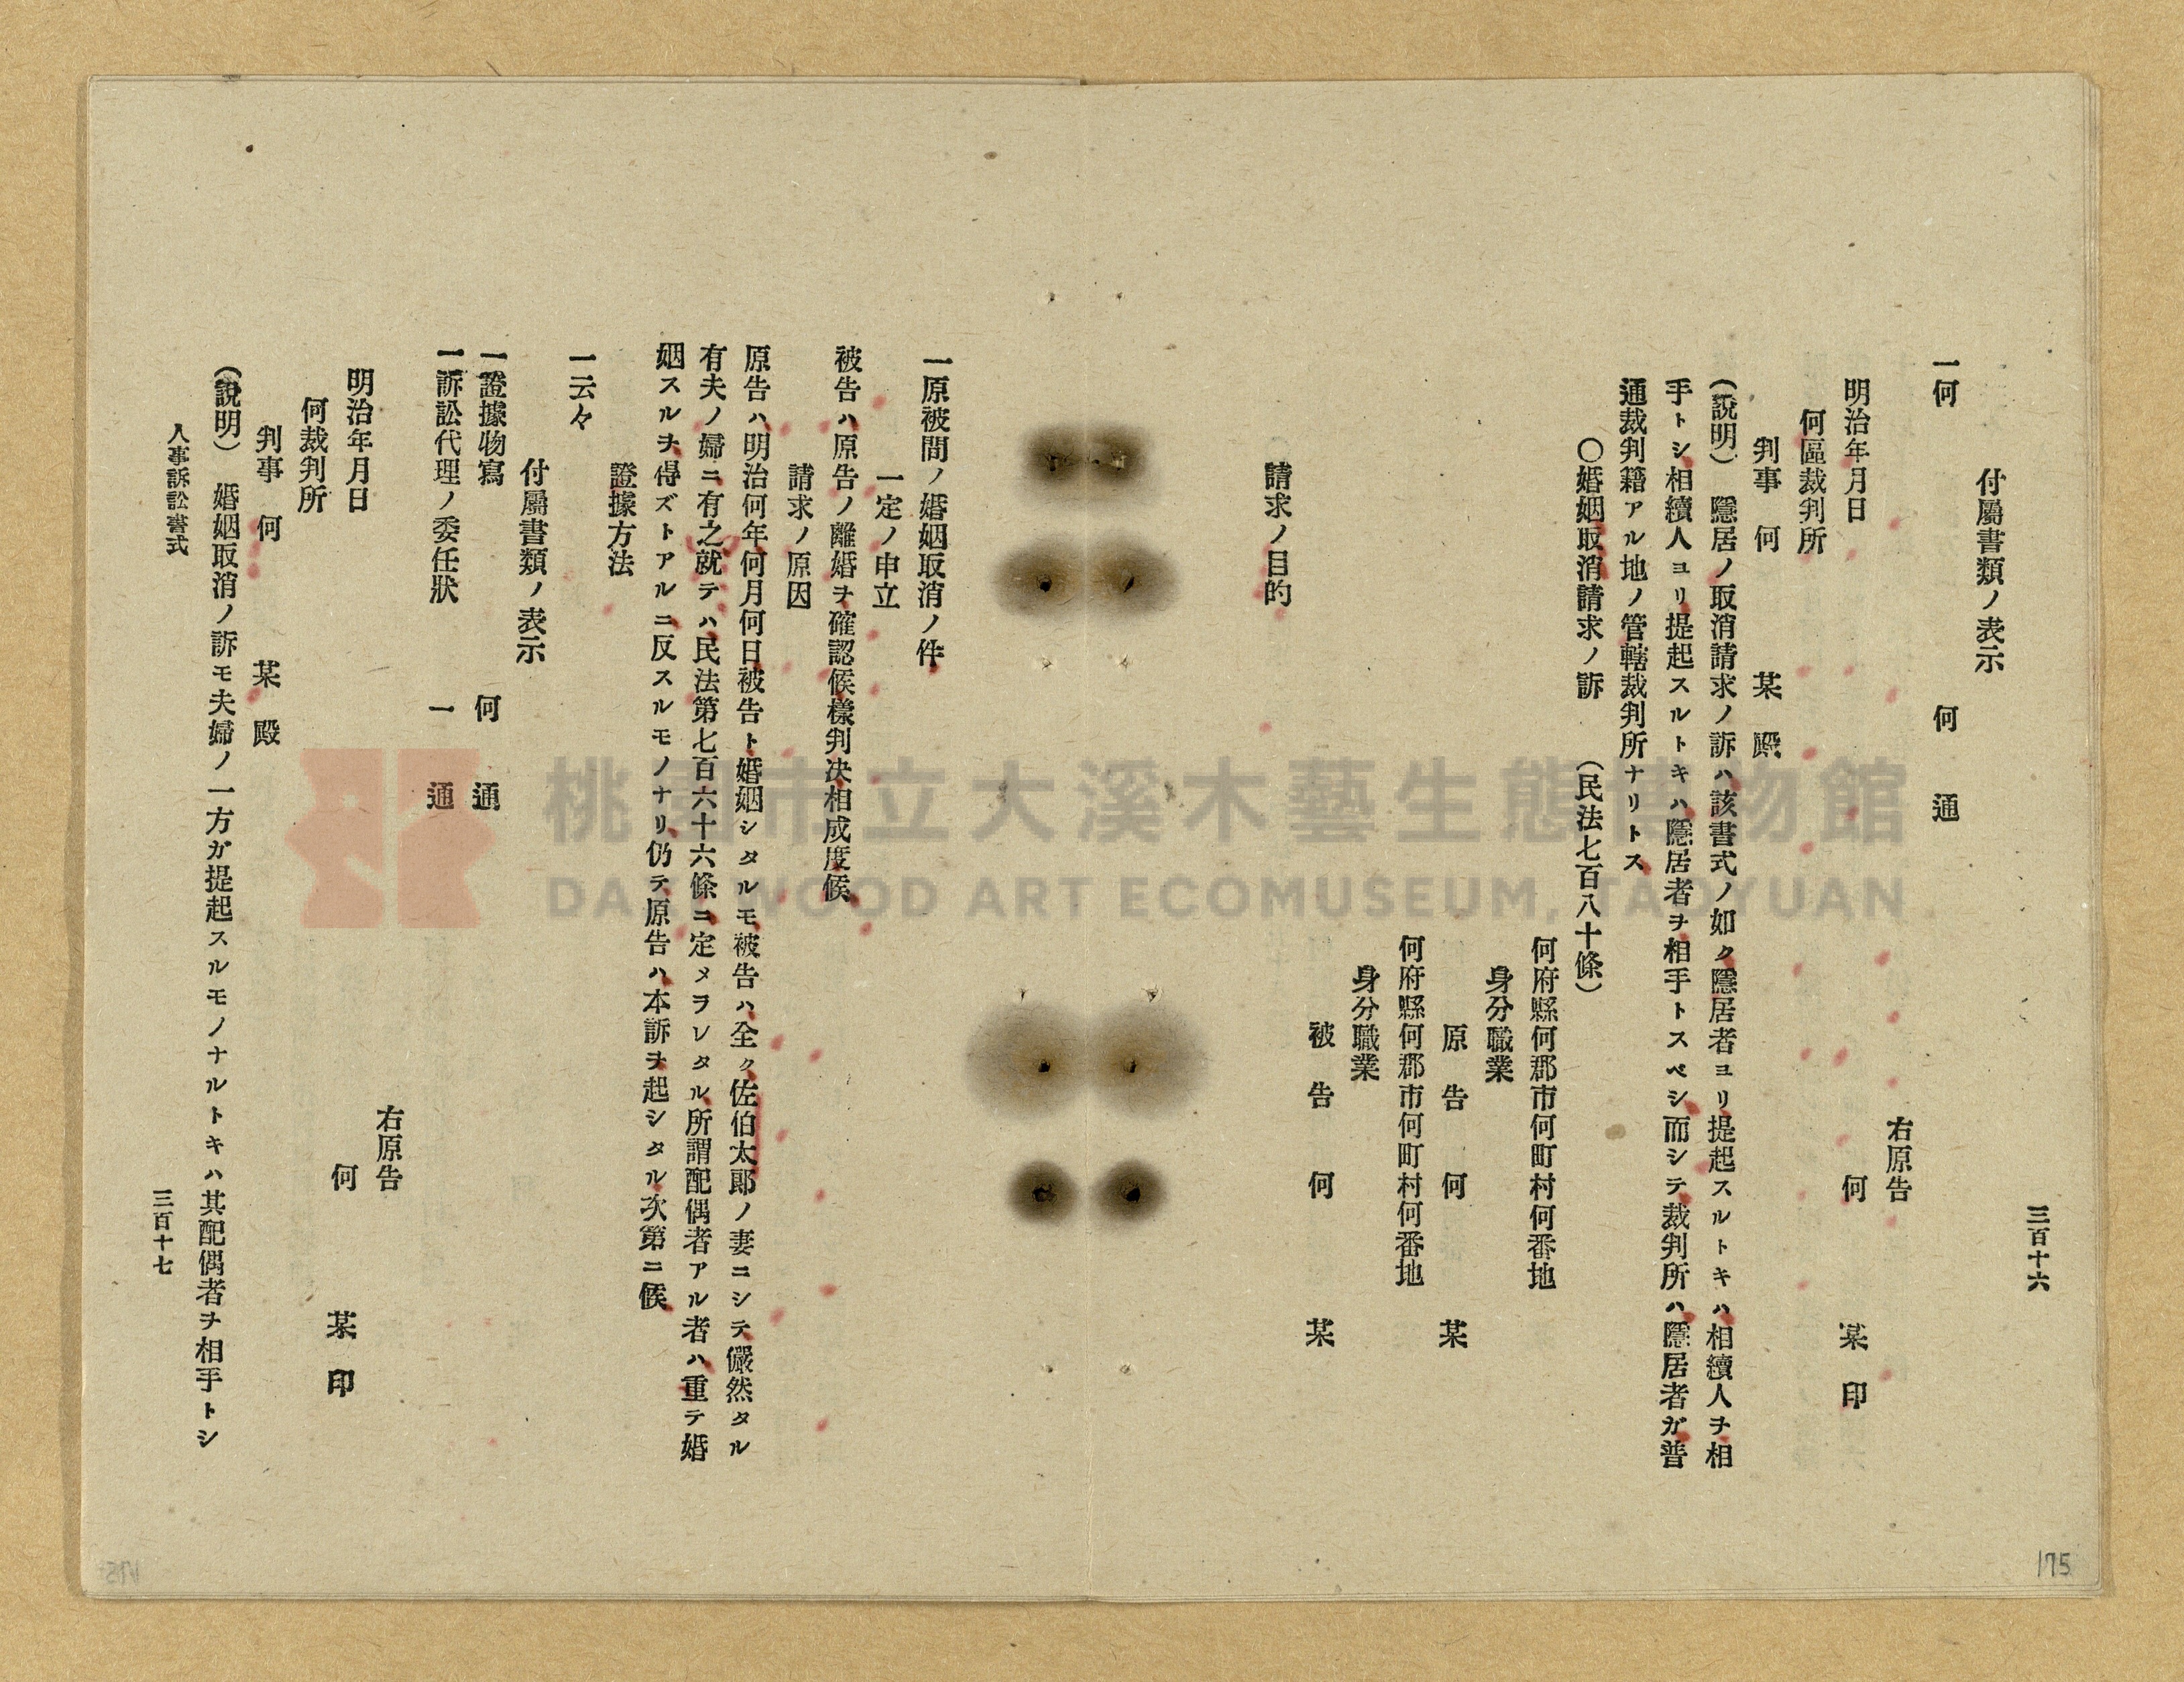 三百十六
付屬書類ノ表示
一何　何通
右原告
明治年月日　何　某　印
何區裁判所
判事　何　某　殿
(說明)　隱居ノ取消請求ノ訴ハ該書式ノ如ク隱居者ヨリ提起スルトキハ相續人ヲ相
手トシ相續人ヨリ提起スルトキハ隱居者ヲ相手トスベシ而シテ裁判所ハ隱居者ガ普
通裁判籍アル地ノ管轄裁判所ナリトス
〇婚姻取消請求ノ訴　(民法七百八十條)
何府縣何郡市何町村何番地
身分職業
原告　何　某
何府縣何郡市何町村何番地
身分職業
被告　何　某
請求ノ目的
175
一原被間ノ婚姻取消ノ件
一定ノ申立
被告ハ原告ノ離婚ヲ確認候樣判决相成度候
請求ノ原因
原告ハ明治何年何月何日被告ト婚姻シタルモ被告ハ全ク佐伯太郎ノ妻ニシテ儼然タル
有夫ノ婦ニ有之就テハ民法第七百六十六條ニ定メヲレタル所謂配偶者アル者ハ重テ婚
姻スルヲ得ズトアルニ反スルモノナリ仍テ原告ハ本訴ヲ起シタル次第ニ候
證據方法
一云々
付屬書類ノ表示
一證據物寫　何通
一訴訟代理ノ委任狀　一通
右原告
明治年月日　何　某　印
何裁判所
判事　何　某　殿
(說明)　婚姻取消ノ訴モ夫婦ノ一方ガ提起スルモノナルトキハ其配偶者ヲ相手トシ
人事訴訟書式
三百十七
桃園市立大溪木藝生態博物館
DAXI WOOD ART ECOMUSEUM, TAOYUAN